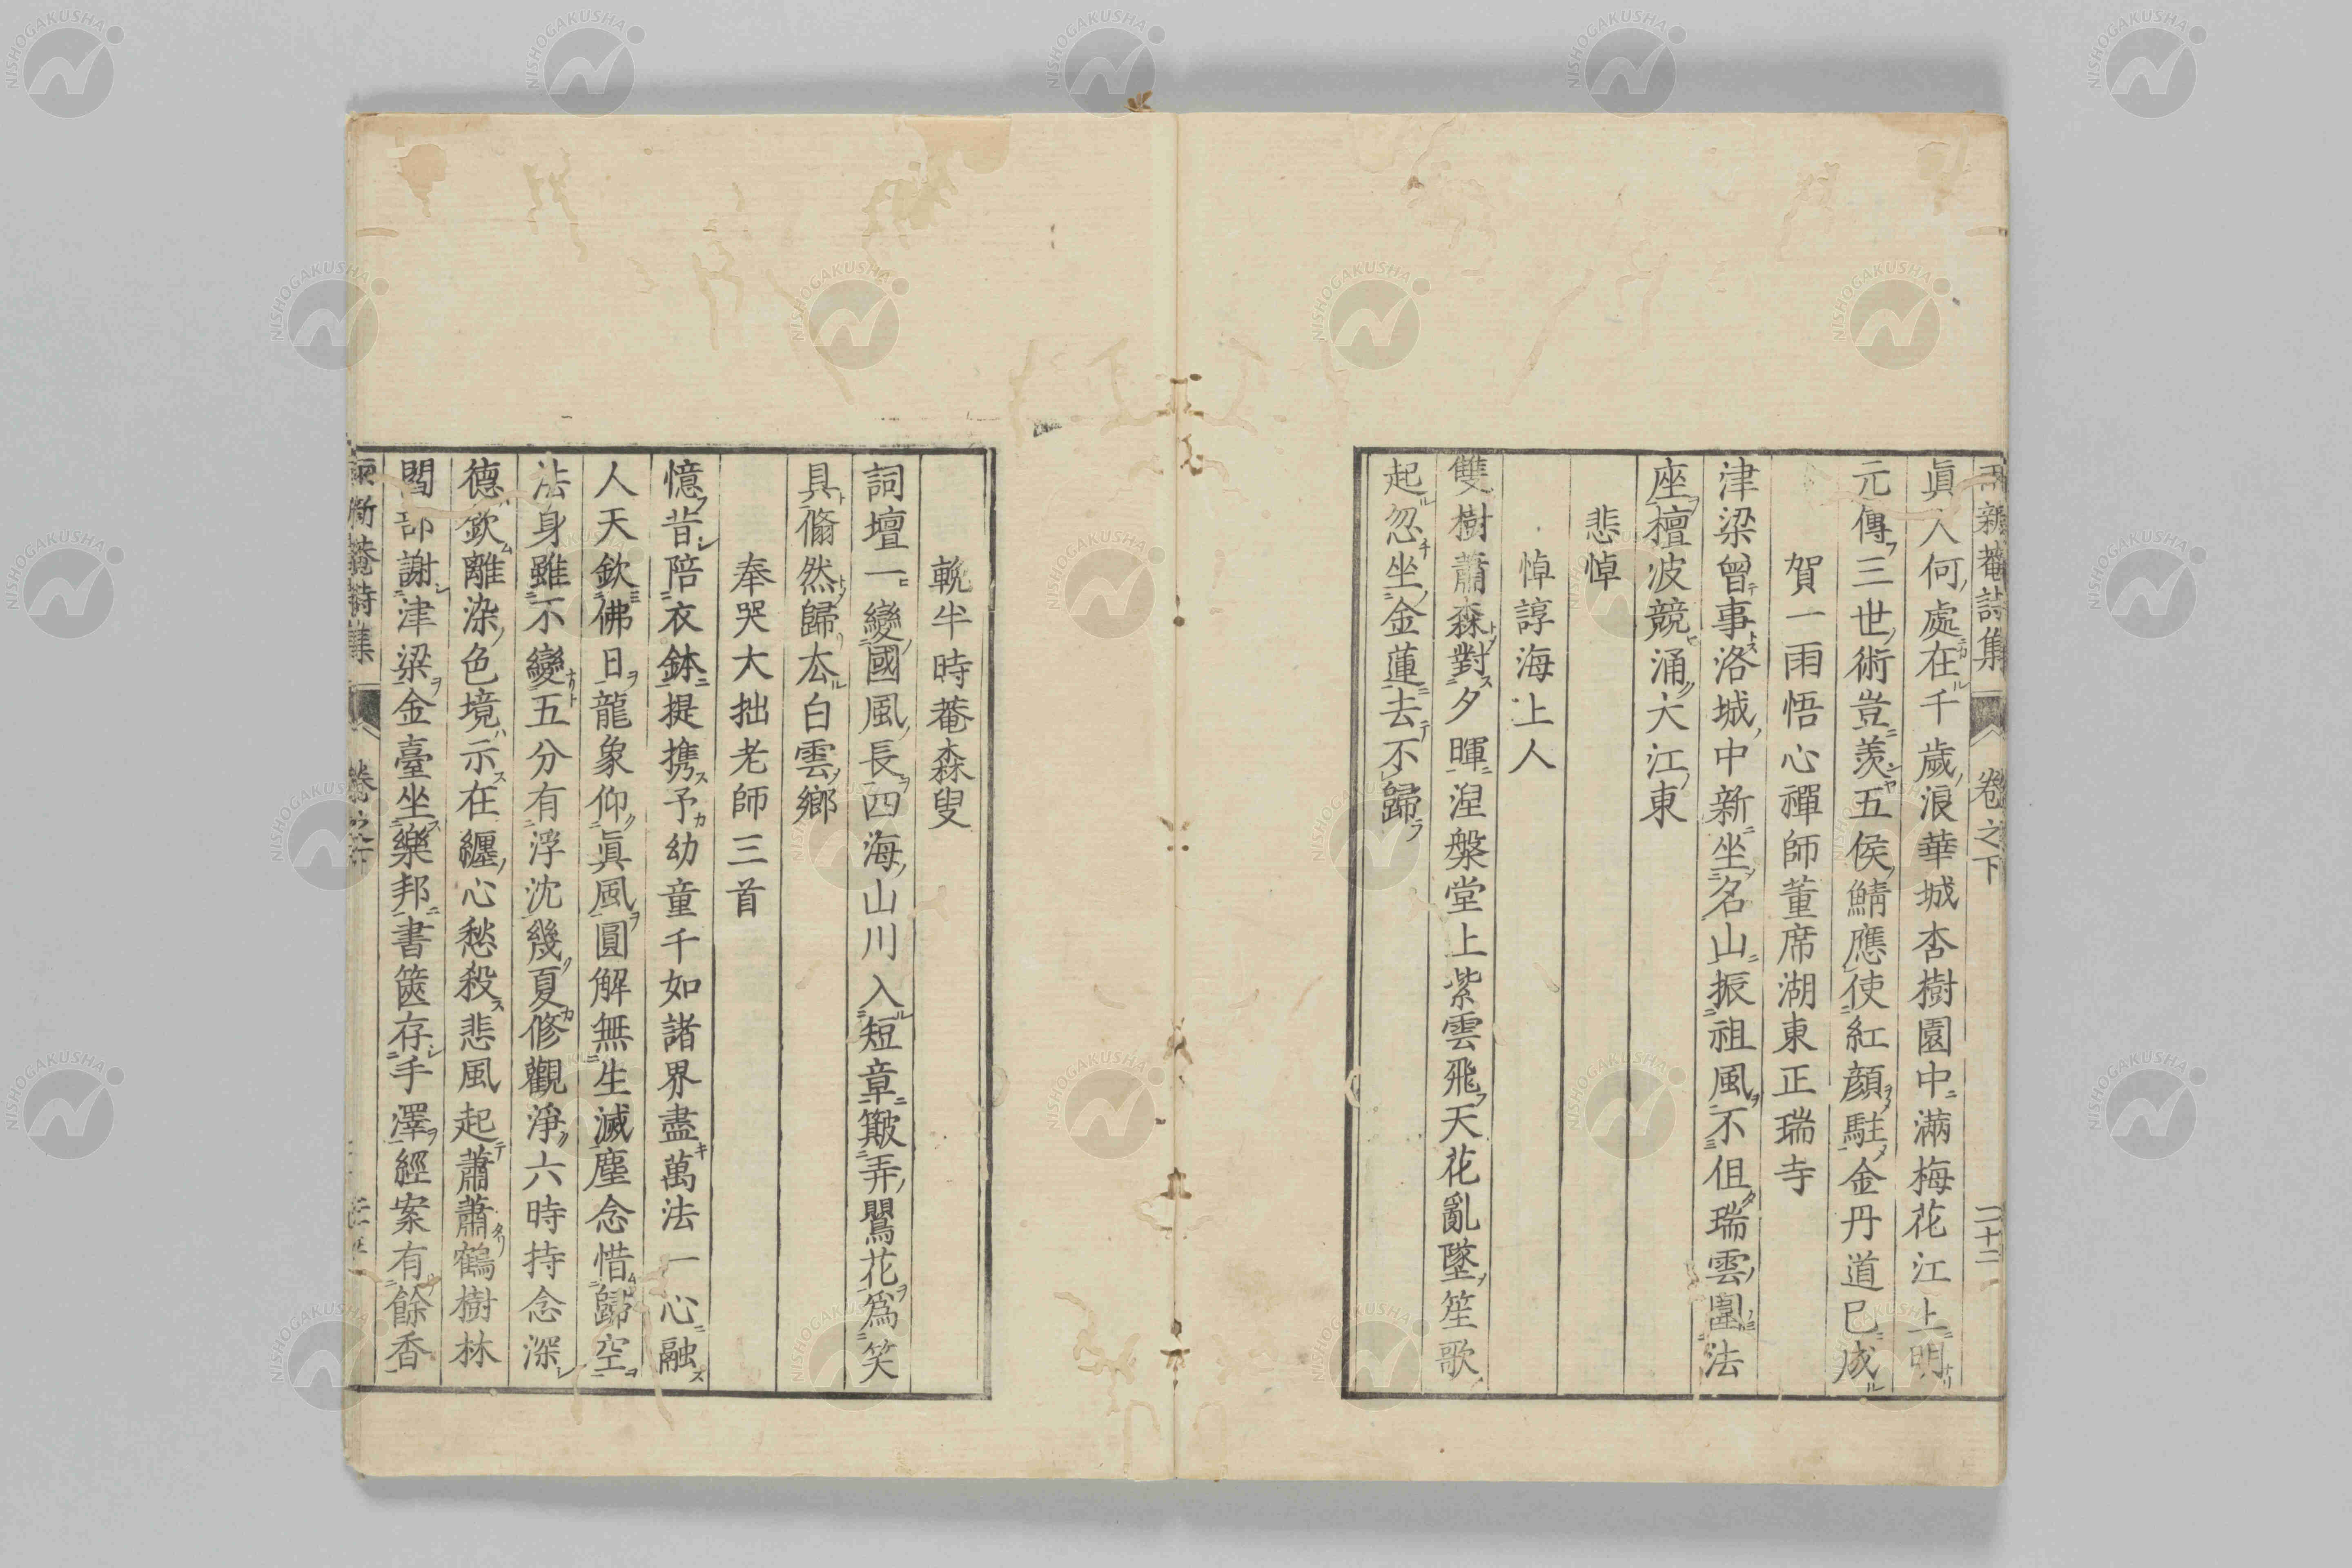 雨新菴詩集 卷之下 二十二
眞人何處在千歲浪華城杏樹園中滿梅花江上明
元傳三世術豈羨五侯鯖應使紅顏駐金丹道已成
賀一雨悟心禪師董席湖東正瑞寺
津梁曾事洛城中新坐名山振祖風不但瑞雲圍法
座檀波競涌大江東
悲悼
悼諄海上人
雙樹蕭森對夕暉涅槃堂上紫雲飛天花亂墜笙歌
起忽坐金蓮去不歸
輓半時菴森叟
詞壇一變國風長四海山川入短章簸弄鸎花爲笑
具翛然歸厺白雲鄉
奉哭大拙老師三首
憶昔陪衣鉢提携予幼童千如諸界盡萬法一心融
人天欽佛日龍象仰眞風圓解無生滅塵念惜歸空
法身雖不變五分有浮沈幾夏修觀淨六時持念深
德欽離染色境示在纏心愁殺悲風起蕭蕭鶴樹林
閻部謝津梁金臺坐樂邦書篋存手澤經案有餘香
NISHOGAKUSHA